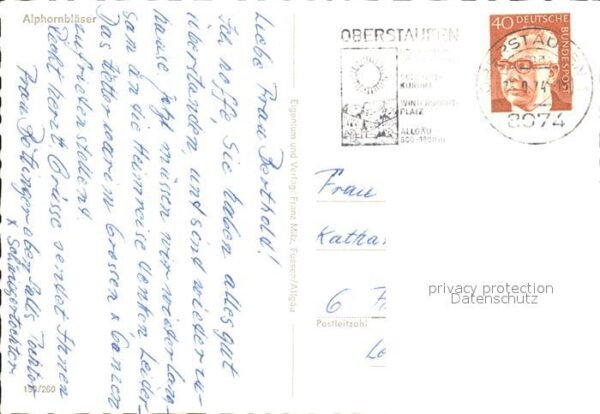 Alphornbläser
Liebe Frau Berthold!
Ich hoffe Sie haben alles gut
überstanden, und sind wieder zu-
hause, jetzt müssen wir wieder lang
sam an die Heimreise denken, Leider
Das Wetter war im Grossen & Ganzen
zufriedenstellend
Recht herzl. Grüsse sendet Ihnen
Frau
& Schwiegertochter
130/260
Eigentum und Verlag: Franz Milz, Füssen/Allgäu
OBERSTAUFEN
KURORT
WINTERSPORT-
PLATZ
ALLGÄU
800-1800m
40
DEUTSCHE
BUNDESPOST
OBERSTAUFEN
74
8974
Frau
Katha
6 F
Postleitzahl
privacy protection
Datenschutz